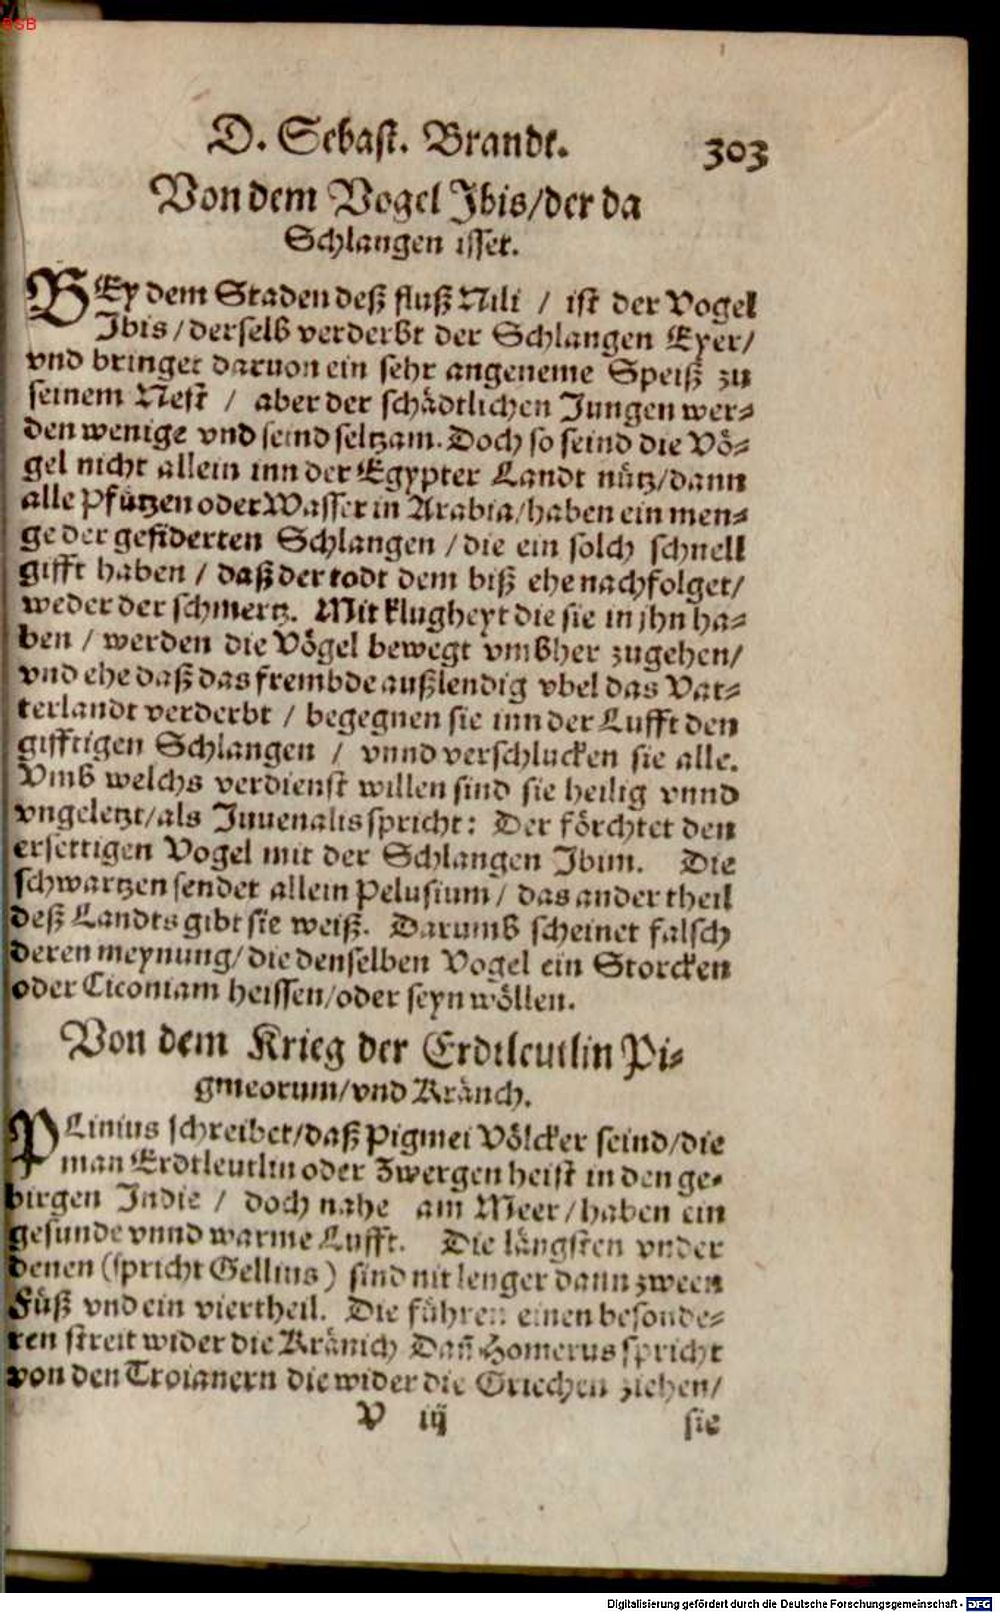 BSB
D. Sebast. Brandt. 303
Von dem Vogel Ibis/der da
Schlangen isset.
BEy dem Staden deß fluß Nili / ist der Vogel
Ibis/derselb verderbt der Schlangen Eyer/
vnd bringet daruon ein sehr angeneme Speiß zu
seinem Nest / aber der schädtlichen Jungen wer-
den wenige vnd seind seltzam. Doch so seind die Vö-
gel nicht allein inn der Egypter Landt nütz/dann
alle Pfützen oder Wasser in Arabia/haben ein men-
ge der gefiderten Schlangen / die ein solch schnell
gifft haben / daß der todt dem biß ehe nachfolget/
weder der schmertz. Mit klugheyt die sie in jhn ha-
ben / werden die Vögel bewegt vmbher zugehen/
vnd ehe daß das frembde außlendig vbel das Vat-
terlandt verderbt / begegnen sie inn der Lufft den
gifftigen Schlangen / vnnd verschlucken sie alle.
Vmb welchs verdienst willen sind sie heilig vnnd
vngeletzt/als Juuenalis spricht: Der förchtet den
ersettigen Vogel mit der Schlangen Ibim. Die
schwartzen sendet allein Pelusium / das ander theil
deß Landts gibt sie weiß. Darumb scheinet falsch
deren meynung/die denselben Vogel ein Storcken
oder Ciconiam heissen/oder seyn wöllen.
Von dem Krieg der Erdtleutlin Pi-
gmeorum/vnd Kränch.
PLinius schreibet/daß Pigmei Völcker seind/die
man Erdtleutlin oder Zwergen heist in den ge-
birgen Indie / doch nahe am Meer/haben ein
gesunde vnnd warme Lufft. Die längsten vnder
denen (spricht Gellius) sind nit lenger dann zween
Füß vnd ein viertheil. Die führen einen besonde-
ren streit wider die Kränich Dañ Homerus spricht
von den Troianern die wider die Griechen ziehen/
V iij sie
Digitalisierung gefördert durch die Deutsche Forschungsgemeinschaft - DFG